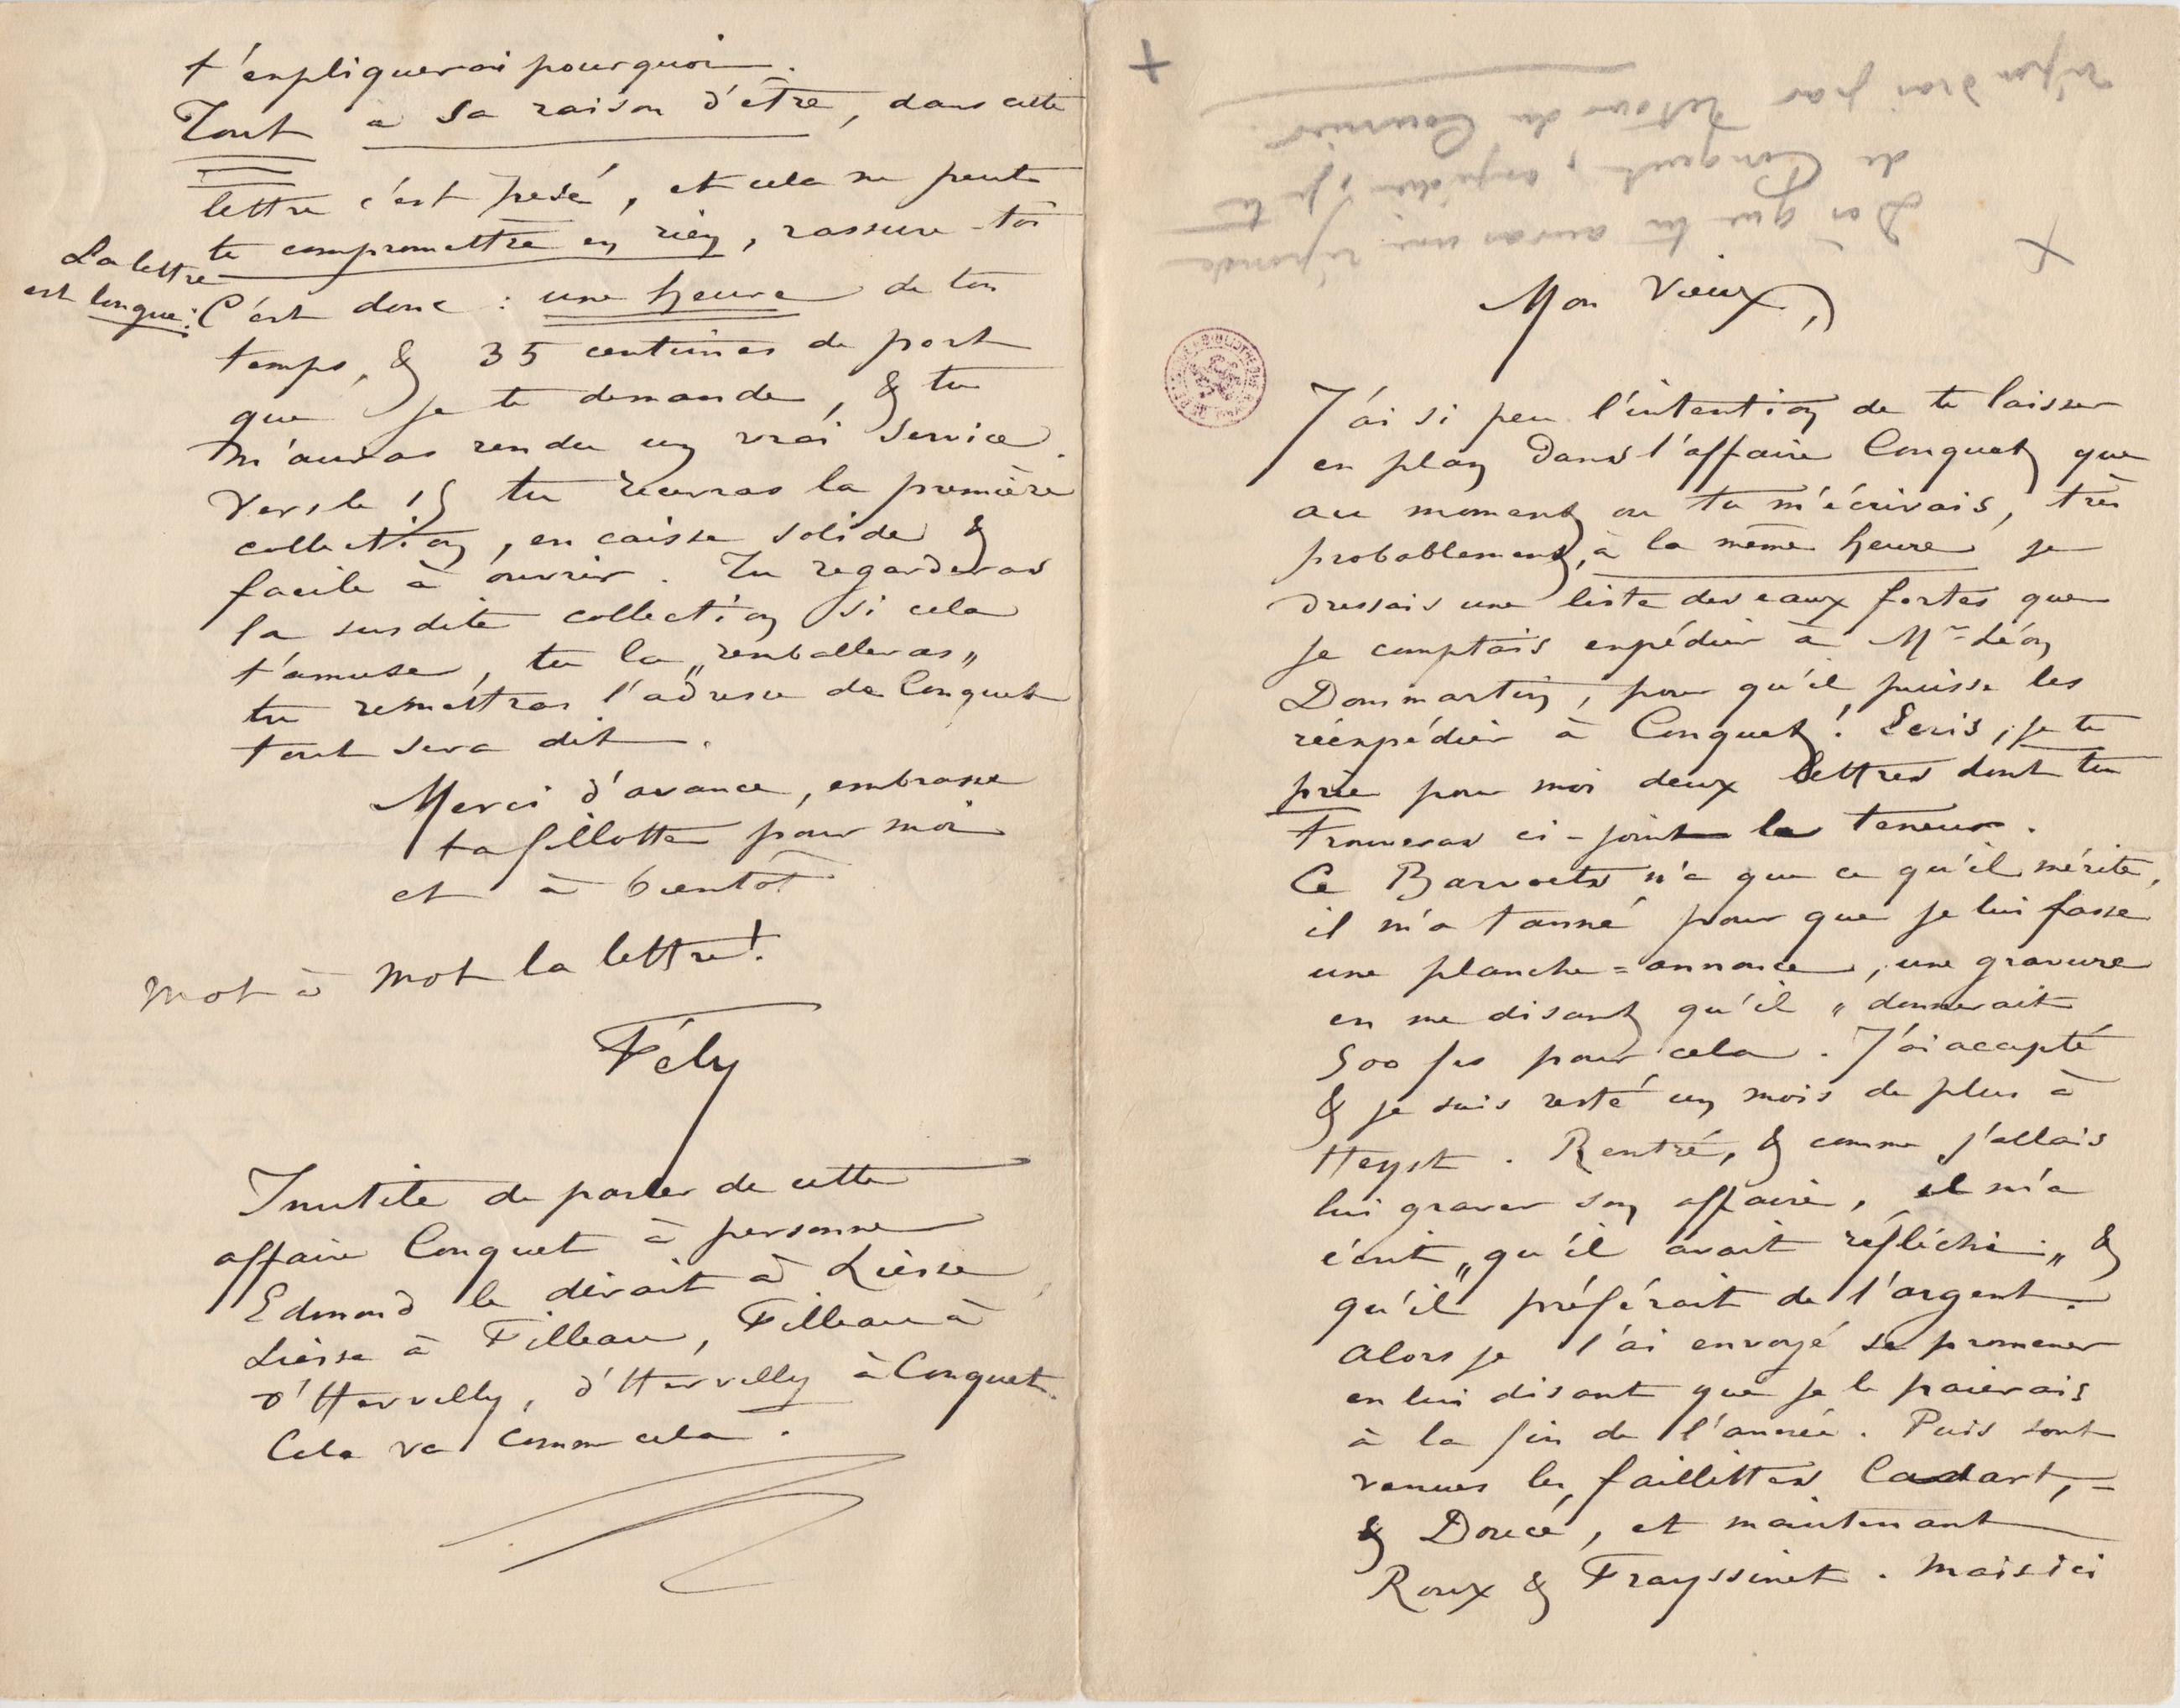 Dès que tu auras une réponse
de Conquet, expédie, je te
répondrai par retour du Courrier.
Mon Vieux,
J'ai si peu l'intention de te laisser
en plan dans l'affaire Conquet que
au moment ou tu m'écrivais, très
probablement, à la même heure je
dressais une liste des eaux fortes que
je comptais expédier à Mr Léon
Dommartin, pour qu'il puisse les
réexpédier à Conquet ! Ecris, je te
prie pour moi deux lettres dont tu
trouveras ci-joint la teneur.
Ce Barvoets n'a que ce qu'il mérite,
il m'a tanné pour que je lui fasse
une planche=annonce, une gravure
en me disant qu'il „ donnerait
500 frs pour cela. J'ai accepté
& je suis resté un mois de plus à
Heyst. Rentré, & comme j'allais
lui graver son affaire, il m'a
écrit „qu'il avait réfléchi„ &
qu'il préférait de l'argent.
Alors je l'ai envoyé se promener
en lui disant que je le paierais
à la fin de l'année. Puis sont
venues les faillittes Cadart,
& Doucé, et maintenant
Roux & Frayssinet. Mais ici
t'expliquerai pourquoi.
Tout a sa raison d'être, dans cette
lettre c'est pesé, et cela ne peut
te compromettre en rien, rassure-toi
La lettre
est longue :
C'est donc : une heure de ton
temps, & 35 centimes de port
que je te demande, & tu
m'auras rendu un vrai service.
Vers le 15 tu recevras la première
collection, en caisse solide &
facile à ouvrir. Tu regarderas
la susdite collection si cela
t'amuse, tu la „remballeras„
tu remettras l'adresse de Conquet
tout sera dit.
Merci d'avance, embrasse
ta fillotte pour moi
et à bientôt
Mot à mot la lettre !
Fély
Inutile de parler de cette
affaire Conquet à personne
Edmond le dirait à Liesse
Liesse à Filleau, Filleau à
d'Hervilly, d'Hervilly à Conquet.
Cela va comme cela.